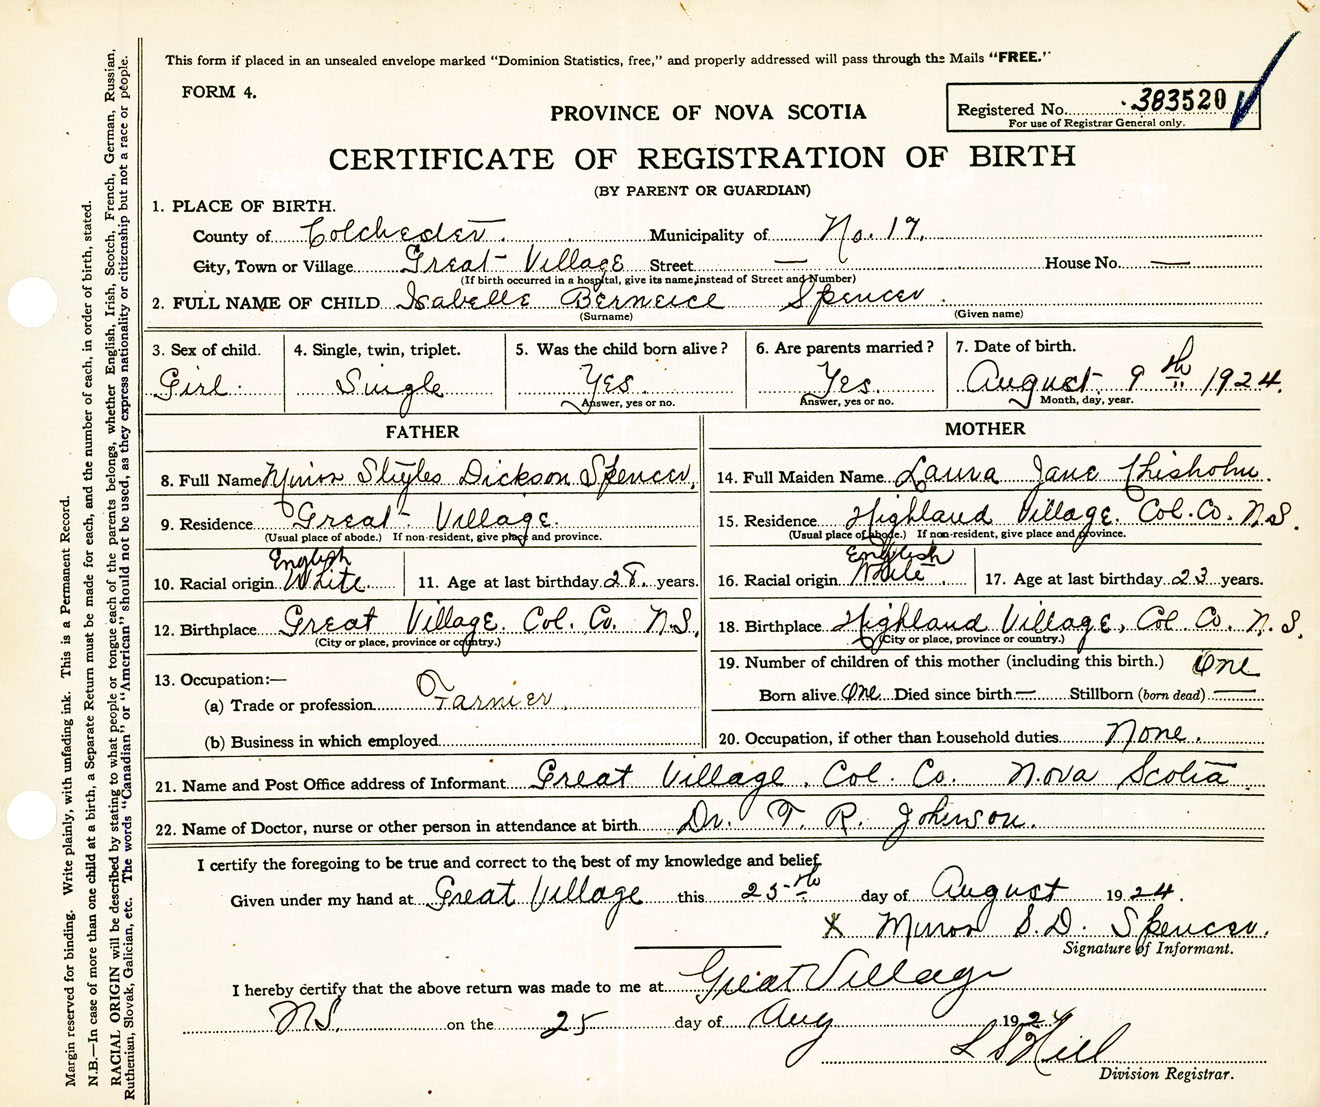 This form if placed in an unsealed envelope marked "Dominion Statistics, free," and properly addressed will pass through the Mails "FREE."
FORM 4.
Registered No. 383520
For use of Registrar General only.
PROVINCE OF NOVA SCOTIA
CERTIFICATE OF REGISTRATION OF BIRTH
(BY PARENT OR GUARDIAN)
1. PLACE OF BIRTH.
County of Colchester. Municipality of No. 17.
City, Town or Village Great Village Street — House No. —
(If birth occurred in a hospital, give its name instead of Street and Number)
2. FULL NAME OF CHILD Isabelle Berneice Spencer.
(Surname) (Given name)
3. Sex of child. 4. Single, twin, triplet. 5. Was the child born alive? 6. Are parents married? 7. Date of birth.
Girl. Single Yes Yes August 9th 1924.
Answer, yes or no. Answer, yes or no. Month, day, year.
FATHER MOTHER
8. Full Name Dickson Spencer. 14. Full Maiden Name Laura Jane Chisholm.
9. Residence Great Village 15. Residence Highland Village. Col. Co. N.S.
(Usual place of abode.) If non-resident, give place and province. (Usual place of abode.) If non-resident, give place and province.
English English
10. Racial origin White 11. Age at last birthday 28. years. 16. Racial origin White 17. Age at last birthday 23 years.
12. Birthplace Great Village. Col. Co. N.S. 18. Birthplace Highland Village, Col. Co. N.S.
(City or place, province or country.) (City or place, province or country.)
19. Number of children of this mother (including this birth.) One
13. Occupation:—
(a) Trade or profession Farmer. Born alive One Died since birth — Stillborn (born dead) —
(b) Business in which employed 20. Occupation, if other than household duties None.
21. Name and Post Office address of Informant Great Village. Col. Co. Nova Scotia
22. Name of Doctor, nurse or other person in attendance at birth Dr. T. R. Johnson.
I certify the foregoing to be true and correct to the best of my knowledge and belief.
Given under my hand at Great Village this 25th day of August 1924.
X S. D. Spencer.
Signature of Informant.
I hereby certify that the above return was made to me at Great Village
N.S. on the 25 day of Aug 1924
Hill
Division Registrar.
Margin reserved for binding. Write plainly, with unfading ink. This is a Permanent Record.
N.B.—In case of more than one child at a birth, a Separate Return must be made for each, and the number of each, in order of birth, stated.
RACIAL ORIGIN will be described by stating to what people or tongue each of the parents belongs, whether English, Irish, Scotch, French, German, Russian,
Ruthenian, Slovak, Galician, etc. The words "Canadian" or "American" should not be used, as they express nationality or citizenship but not a race or people.